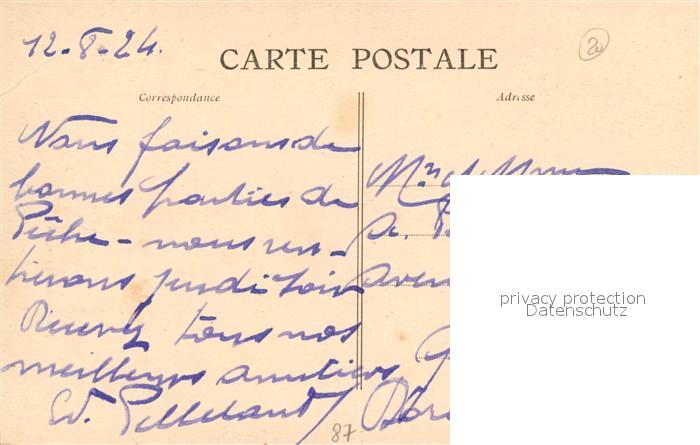 12-8-24.
CARTE POSTALE
Correspondance
Adresse
Nous faisons de
bonnes parties de
Pêche - nous ren-
trerons jeudi soir
Recevez tous nos
meilleurs amitiés
Ed.
Mr et Mme
A.
aven
87
privacy protection
Datenschutz